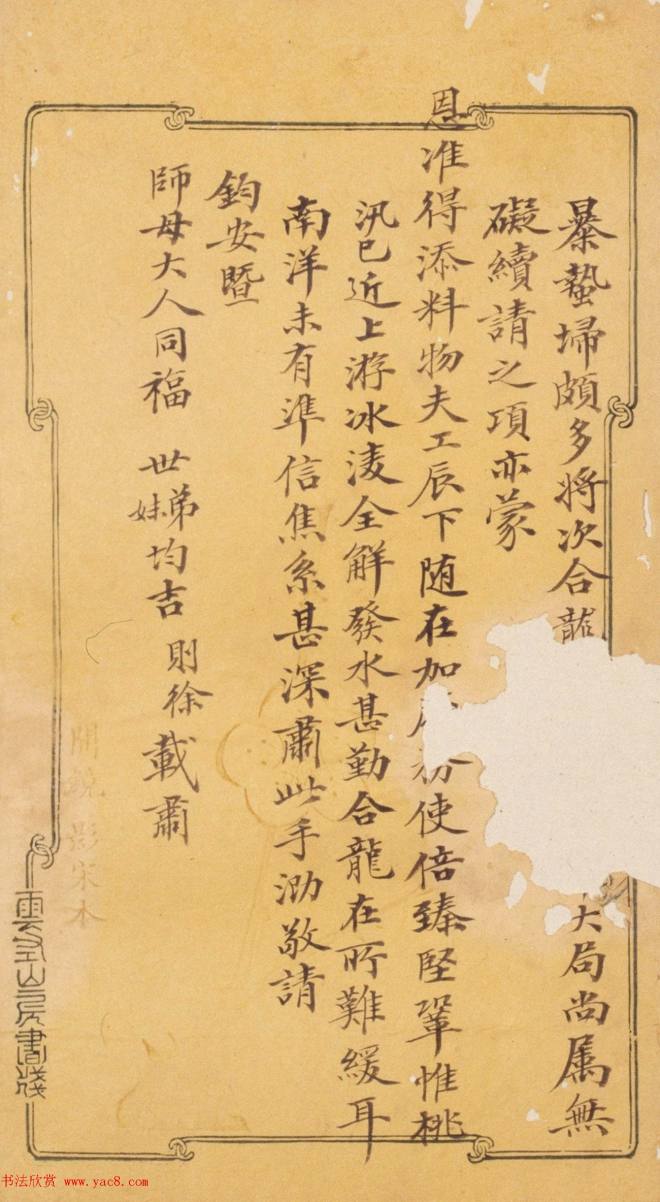 暴蟄埽頗多將次合龍大局尚属無
礙續請之項亦蒙
恩准得添料物夫工辰下随在加使倍臻堅鞏惟桃
汛已近上游冰凌全解發水甚勤合龍在所難緩耳
南洋未有準信焦系甚深肅此手泐敬請
鈞安暨
師母大人同福 世弟妹均吉 則徐載肅
影宋本
雲左山房書牋
书法欣赏 www.yac8.com